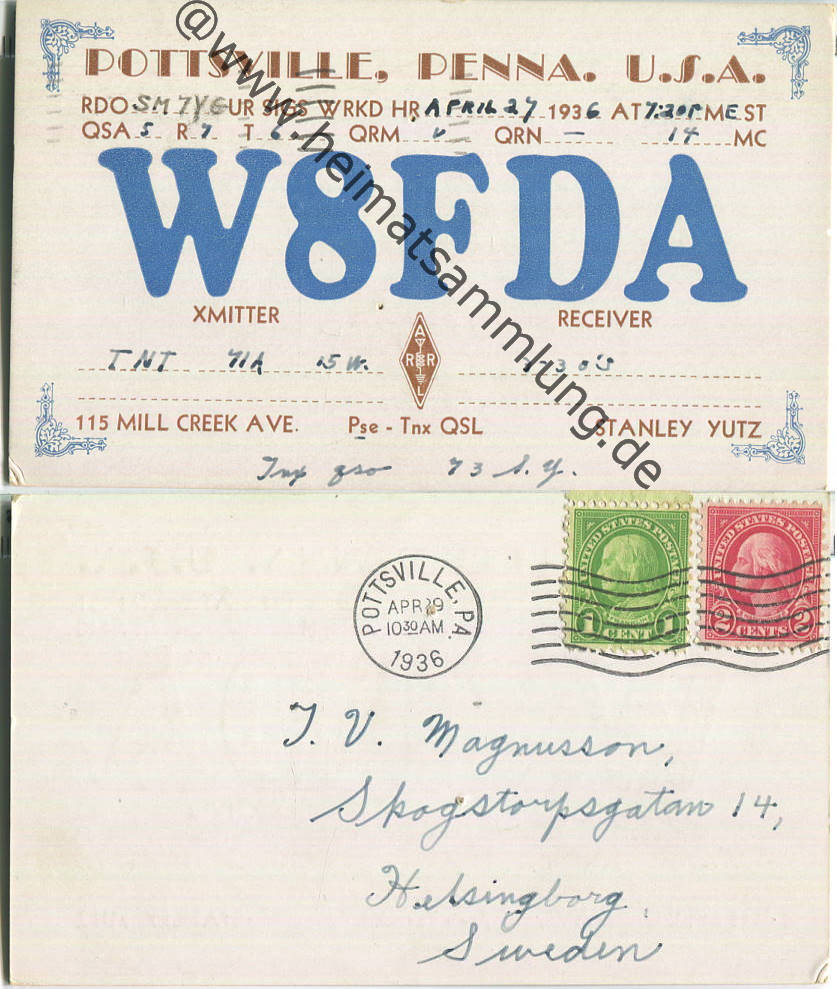 POTTSVILLE, PENNA. U.S.A.
RDO SM7YG UR SIGS WRKD HR APRIL 27 1936 AT 7:20 P.M. EST
QSA 5 R 7 T 6 QRM 0 QRN — 14 MC
W8FDA
XMITTER RECEIVER
TNT 71A 15W.
A R R L
115 MILL CREEK AVE. Pse - Tnx QSL STANLEY YUTZ
Tnx qso 73 S.Y.
@www.heimatsammlung.de
UNITED STATES POSTAGE
1 CENT 1
UNITED STATES POSTAGE
2 CENTS 2
POTTSVILLE, PA.
APR 29
10 30 AM
1936
T. V. Magnusson,
Skogstorpsgatan 14,
Helsingborg
Sweden